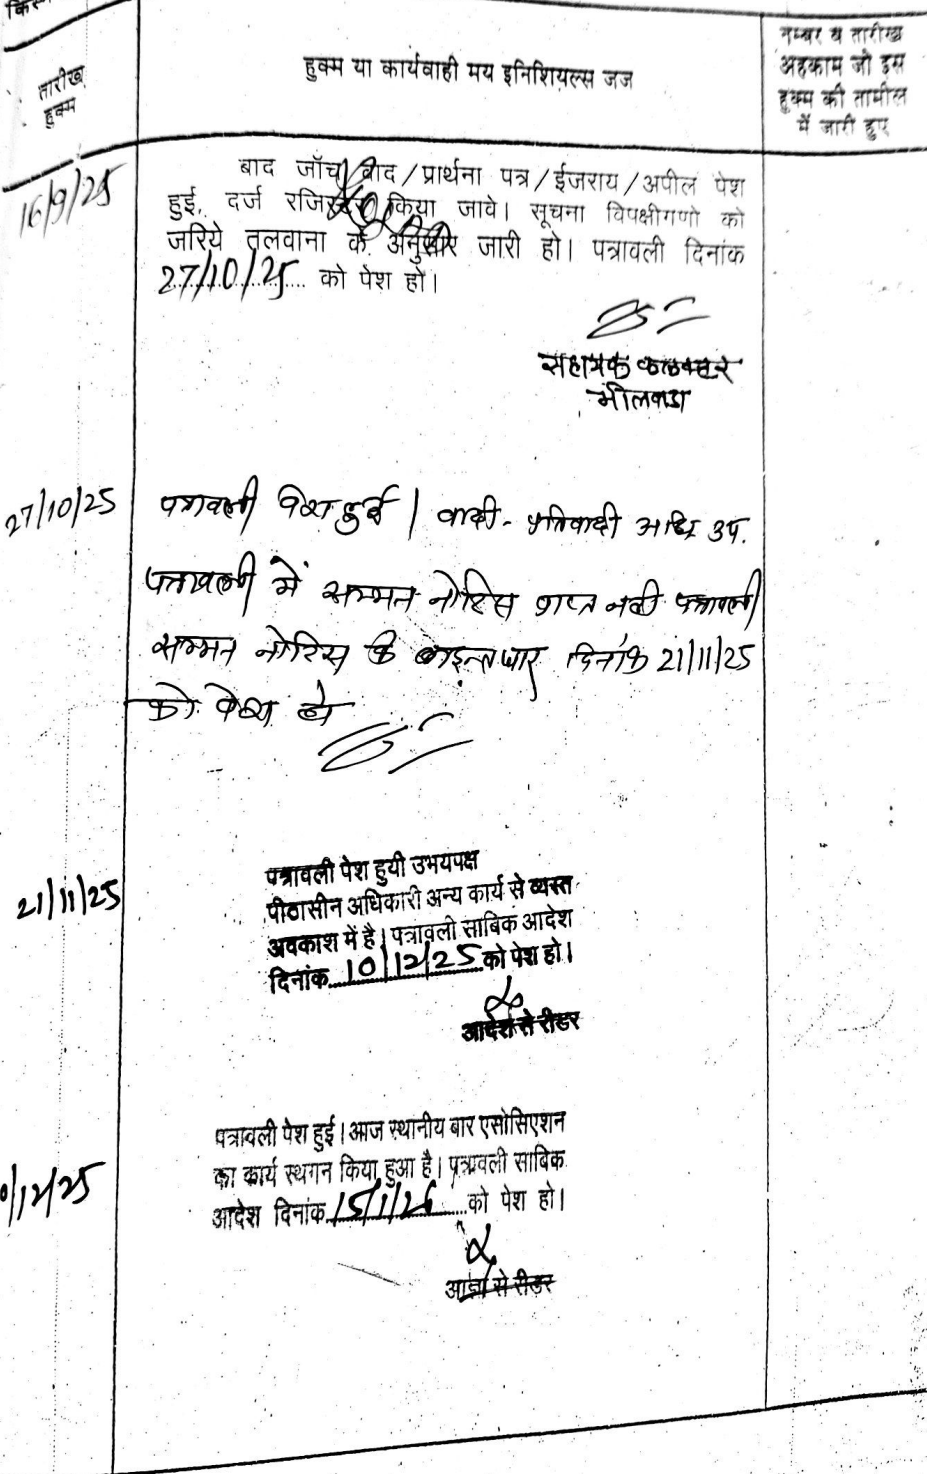 तारीख हुक्म
हुक्म या कार्यवाही मय इनिशियल्स जज
नम्बर व तारीख
अहकाम जो इस
हुक्म की तामील
में जारी हुए
16/9/25
बाद जाँच वाद/प्रार्थना पत्र/ईजराय/अपील पेश
हुई, दर्ज रजिस्टर किया जावे। सूचना विपक्षीगणो को
जरिये तलवाना के अनुसार जारी हो। पत्रावली दिनांक
27/10/25 को पेश हो।
सहायक कलक्टर
भीलवाडा
27/10/25
पत्रावली पेश हुई। वादी - प्रतिवादी अधि उप.
पत्रावली में सम्मन नोटिस प्राप्त नही पत्रावली
सम्मन नोटिस के दिनांक 21/11/25
को पेश हो
21/11/25
पत्रावली पेश हुयी उभयपक्ष
पीठासीन अधिकारी अन्य कार्य से व्यस्त
अवकाश में है। पत्रावली साबिक आदेश
दिनांक 10/12/25 को पेश हो।
आदेश से रीडर
/12/25
पत्रावली पेश हुई। आज स्थानीय बार एसोसिएशन
का कार्य स्थगन किया हुआ है। पत्रावली साबिक
आदेश दिनांक 15/1/26 को पेश हो।
आज्ञा से रीडर